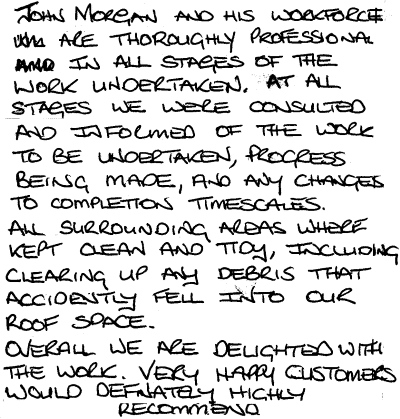 JOHN MORGAN AND HIS WORKFORCE
ARE THOROUGHLY PROFESSIONAL
IN ALL STAGES OF THE
WORK UNDERTAKEN. AT ALL
STAGES WE WERE CONSULTED
AND INFORMED OF THE WORK
TO BE UNDERTAKEN, PROGRESS
BEING MADE, AND ANY CHANGES
TO COMPLETION TIMESCALES.
ALL SURROUNDING AREAS WHERE
KEPT CLEAN AND TIDY, INCLUDING
CLEARING UP ANY DEBRIS THAT
ACCIDENTLY FELL INTO OUR
ROOF SPACE.
OVERALL WE ARE DELIGHTED WITH
THE WORK. VERY HAPPY CUSTOMERS
WOULD DEFNATELY HIGHLY
RECOMMEND